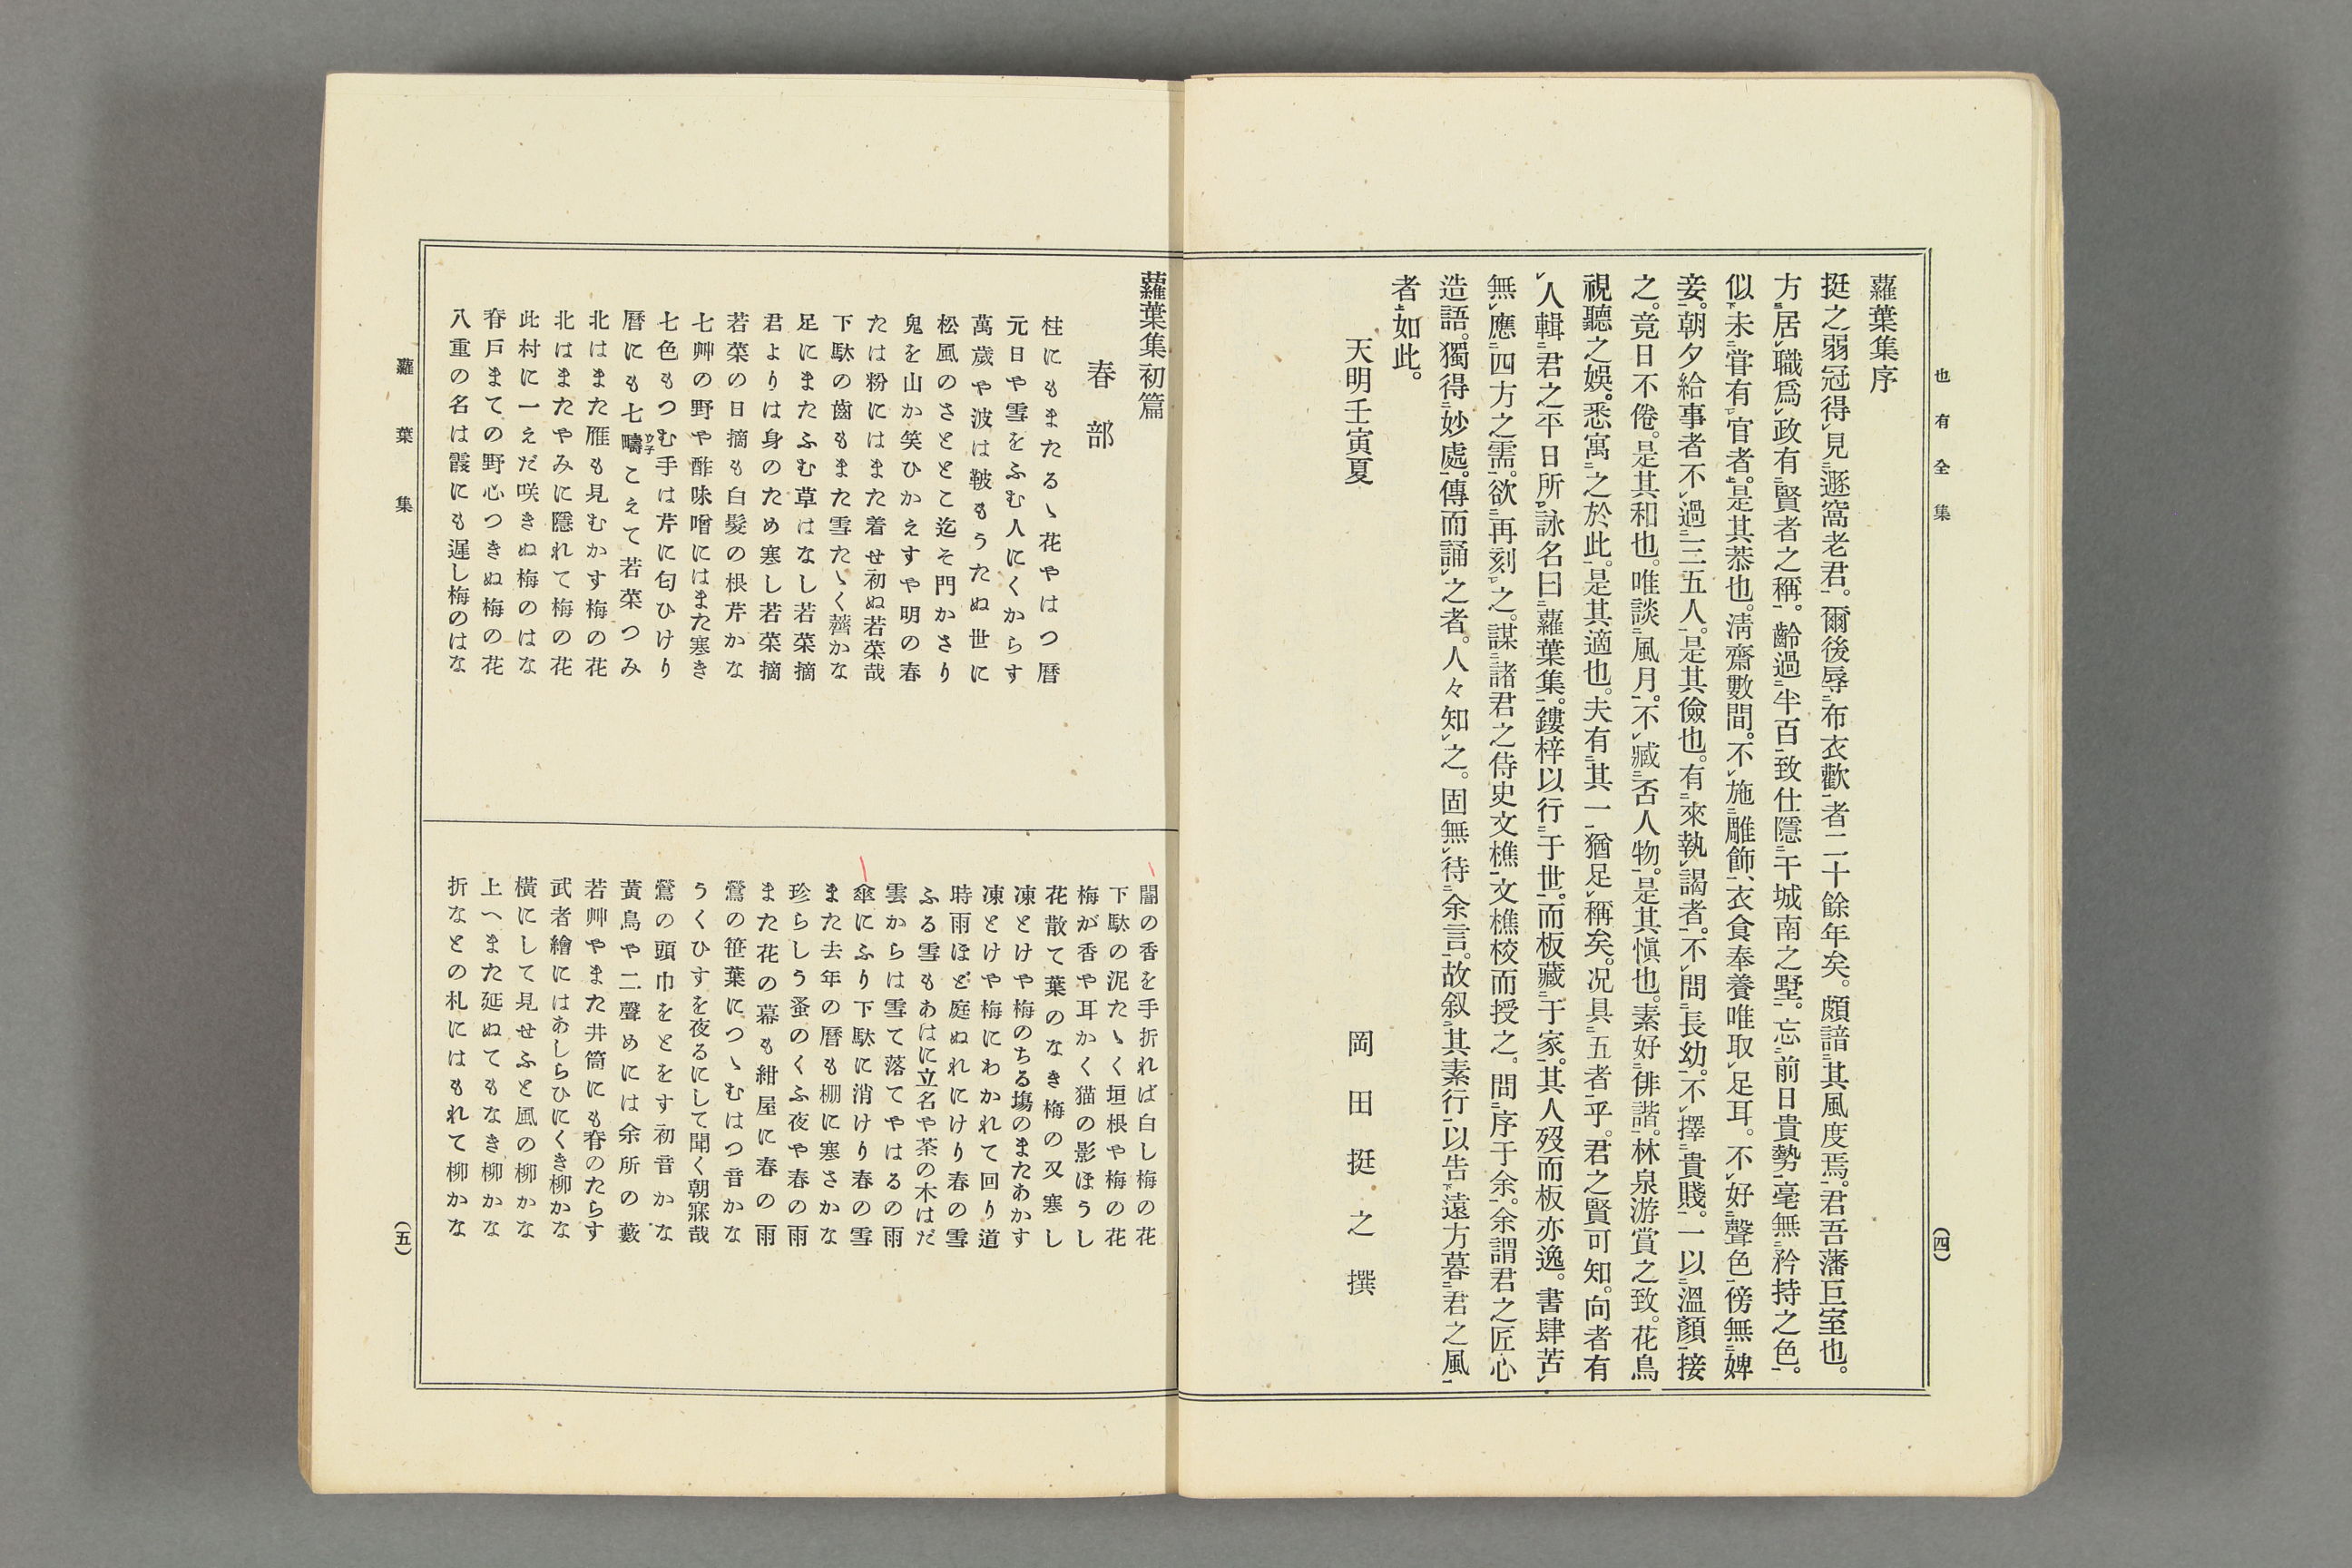 也有全集
(四)
蘿葉集序
挺之弱冠得㆑見㆓遯窩老君㆒。爾後辱㆓布衣歡㆒者二十餘年矣。頗諳㆓其風度㆒焉。君吾藩巨室也。
方㆓居㆑職爲㆑政有㆓賢者之稱㆒。齡過㆓半百㆒致仕隱㆓于城南之墅㆒。忘㆓前日貴勢㆒毫無㆓矜持之色㆒。
似㆘未㆓甞有㆒㆑官者㆖。是其恭也。淸齋數間。不㆑施㆓雕飾㆒、衣食奉養唯取㆑足耳。不㆑好㆓聲色㆒傍無㆓婢
妾㆒。朝夕給事者不㆑過㆓三五人㆒。是其儉也。有㆓來執㆑謁者㆒。不㆑問㆓長幼㆒。不㆑擇㆓貴賤㆒。一以㆓溫顏㆒接
之。竟日不倦。是其和也。唯談㆓風月㆒。不㆑臧㆓否人物㆒。是其愼也。素好㆓俳諧㆒。林泉游賞之致。花鳥
視聽之娛。悉寓㆓之於此㆒。是其適也。夫有㆓其一㆒猶足㆑稱矣。況具㆓五者㆒乎。君之賢可知。向者有
㆑人輯㆓君之平日所㆒㆑詠名曰㆓蘿葉集㆒。鏤梓以行㆓于世㆒。而板藏㆓于家㆒。其人歿而板亦逸。書肆苦㆑
無㆑應㆓四方之需㆒。欲㆓再刻㆒㆑之。謀㆓諸君之侍史文樵㆒文樵校而授之。問㆓序于余㆒。余謂君之匠心
造語。獨得㆓妙處㆒。傳而誦㆑之者。人々知㆑之。固無㆑待㆓余言㆒。故叙㆓其素行㆒以告㆘遠方慕㆓君之風㆒
者㆖如此。
天明壬寅夏
岡田挺之撰
蘿葉集初篇
春部
柱にもまたるゝ花やはつ暦
元日や雪をふむ人にくからす
萬歲や波は皷もうたぬ世に
松風のさととこ迄そ門かさり
鬼を山か笑ひかえすや明の春
たは粉にはまた着せ初ぬ若菜哉
下駄の齒もまた雪たゝく薺かな
足にまたふむ草はなし若菜摘
君よりは身のため寒し若菜摘
若菜の日摘も白髮の根芹かな
七艸の野や酢味噌にはまた寒き
七色もつむ手は芹に匂ひけり
暦にも七疇こえて若菜つみ
北はまた雁も見むかす梅の花
北はまたやみに隱れて梅の花
此村に一えだ咲きぬ梅のはな
脊戶まての野心つきぬ梅の花
八重の名は霞にも遲し梅のはな
闇の香を手折れば白し梅の花
下駄の泥たゝく垣根や梅の花
梅が香や耳かく猫の影ほうし
花散て葉のなき梅の又寒し
凍とけや梅のちる塲のまたあかす
凍とけや梅にわかれて回り道
時雨ほど庭ぬれにけり春の雪
ふる雪もあはに立名や茶の木はだ
雲からは雪て落てやはるの雨
傘にふり下駄に消けり春の雪
また去年の暦も棚に寒さかな
珍らしう蚤のくふ夜や春の雨
また花の幕も紺屋に春の雨
鶯の笹葉につゝむはつ音かな
うくひすを夜るにして聞く朝寐哉
鶯の頭巾をとをす初音かな
黃鳥や二聲めには余所の藪
若艸やまた井筒にも脊のたらす
武者繪にはあしらひにくき柳かな
橫にして見せふと風の柳かな
上へまた延ぬてもなき柳かな
折なとの札にはもれて柳かな
蘿葉集
(五)